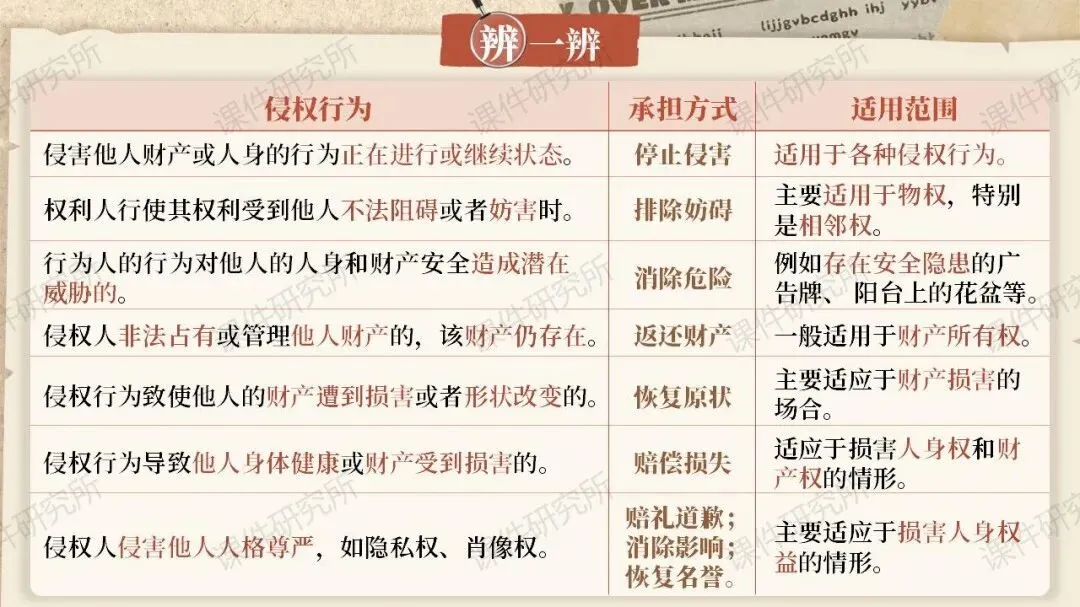 lijjgvbcdghh ihj
辨一辨
侵权行为 承担方式 适用范围
侵害他人财产或人身的行为正在进行或继续状态。 停止侵害 适用于各种侵权行为。
权利人行使其权利受到他人不法阻碍或者妨害时。 排除妨碍 主要适用于物权，特别
是相邻权。
行为人的行为对他人的人身和财产安全造成潜在
威胁的。 消除危险 例如存在安全隐患的广
告牌、阳台上的花盆等。
侵权人非法占有或管理他人财产的，该财产仍存在。 返还财产 一般适用于财产所有权。
侵权行为致使他人的财产遭到损害或者形状改变的。 恢复原状 主要适应于财产损害的
场合。
侵权行为导致他人身体健康或财产受到损害的。 赔偿损失 适应于损害人身权和财
产权的情形。
侵权人侵害他人人格尊严，如隐私权、肖像权。 赔礼道歉；
消除影响；
恢复名誉。 主要适应于损害人身权
益的情形。
课件研究所